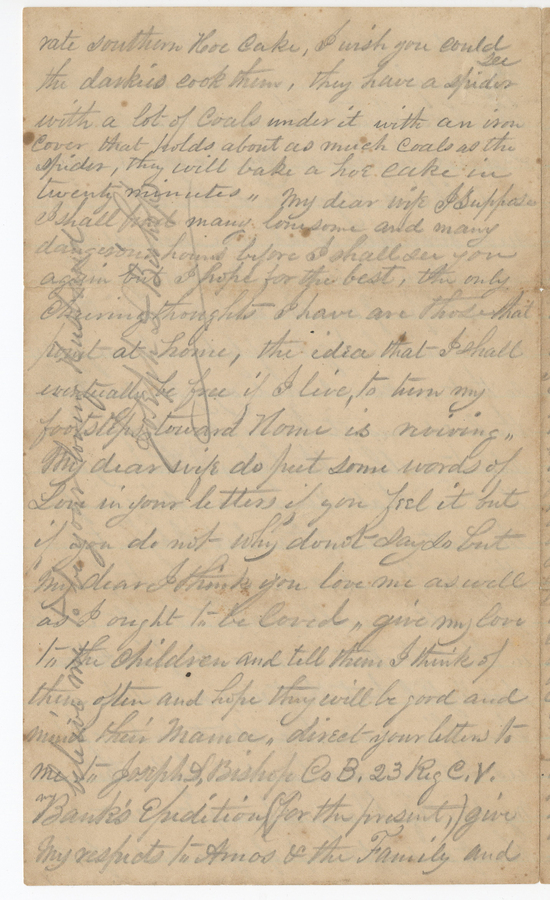 rate southern Hoe Cake, I wish you could see
the darkies cook them, they have a spider
with a lot of Coals under it with an iron
Cover that Holds about as much Coals as the
spider, they will bake a hoe cake in
twenty minutes " My dear wife I suppose
I shall pass many lonesome and many
dangerous hours before I shall see you
again but I hope for the best, the only
Cheering thoughts I have are those that
point at home, the idea that I shall
eventually be free if I live, to turn my
footsteps toward Home is reviving "
My dear wife do put some words of
Love in your letters if you feel it but
if you do not why don't say so but
my dear I think you love me as well
as I ought to be loved " give my love
to the children and tell them I think of
them often and hope they will be good and
mind their Mama " direct your letters to
me to Joseph L. Bishop Co B. 23 Reg C. V.
Bank's Epedition (for the present,) give
My respects to Amos & the Family and
believe me
your loving Husband
Joseph L Bishop